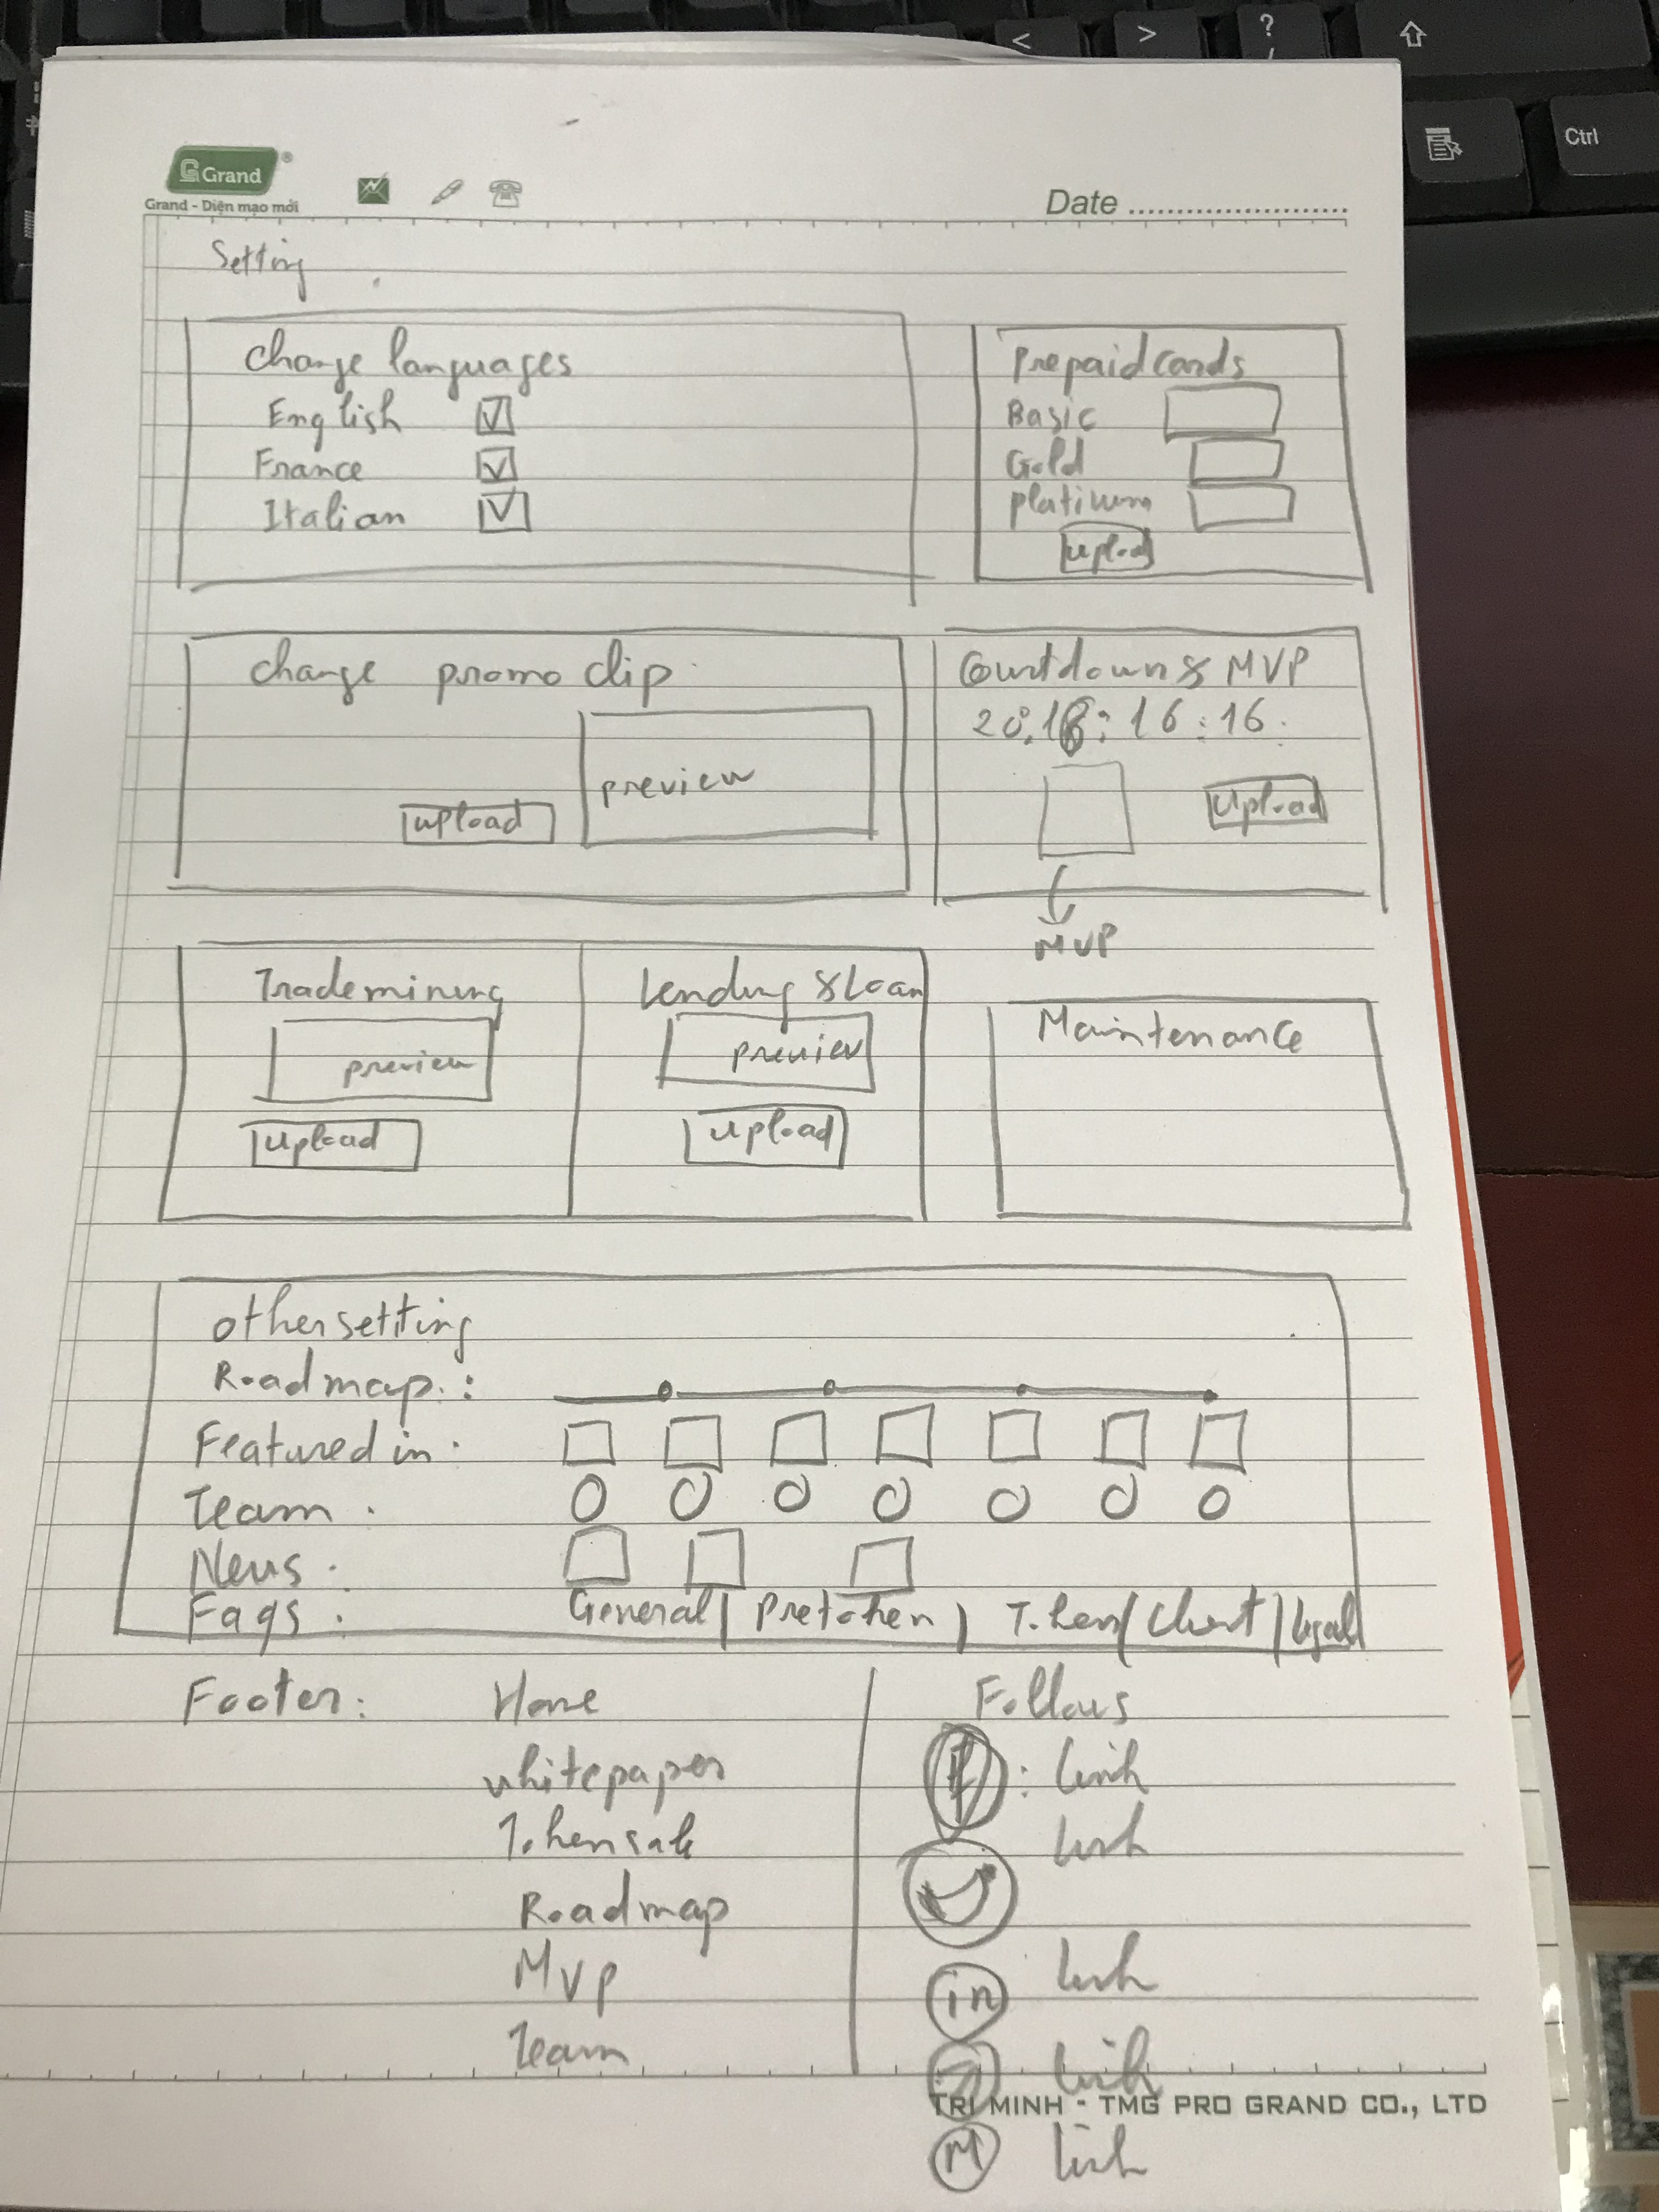 < > ?
/
Ctrl
G Grand ®
Grand - Diện mạo mới
Date
Setting
change languages
English
France
Italian
Prepaid cards
Basic
Gold
platinum
upload
change promo clip
preview
upload
Countdown & MVP
20:18:16:16
Upload
MVP
Trademining
preview
upload
Lending & Loan
preview
upload
Maintenance
other setting
Roadmap :
Featured in :
Team .
News .
Faqs : General | Pretoken | Token | Client | legal
Footer: Home
whitepaper
Tokensale
Roadmap
MVP
Team
Follows
f : link
link
in link
link
M link
TRI MINH - TMG PRO GRAND CO., LTD